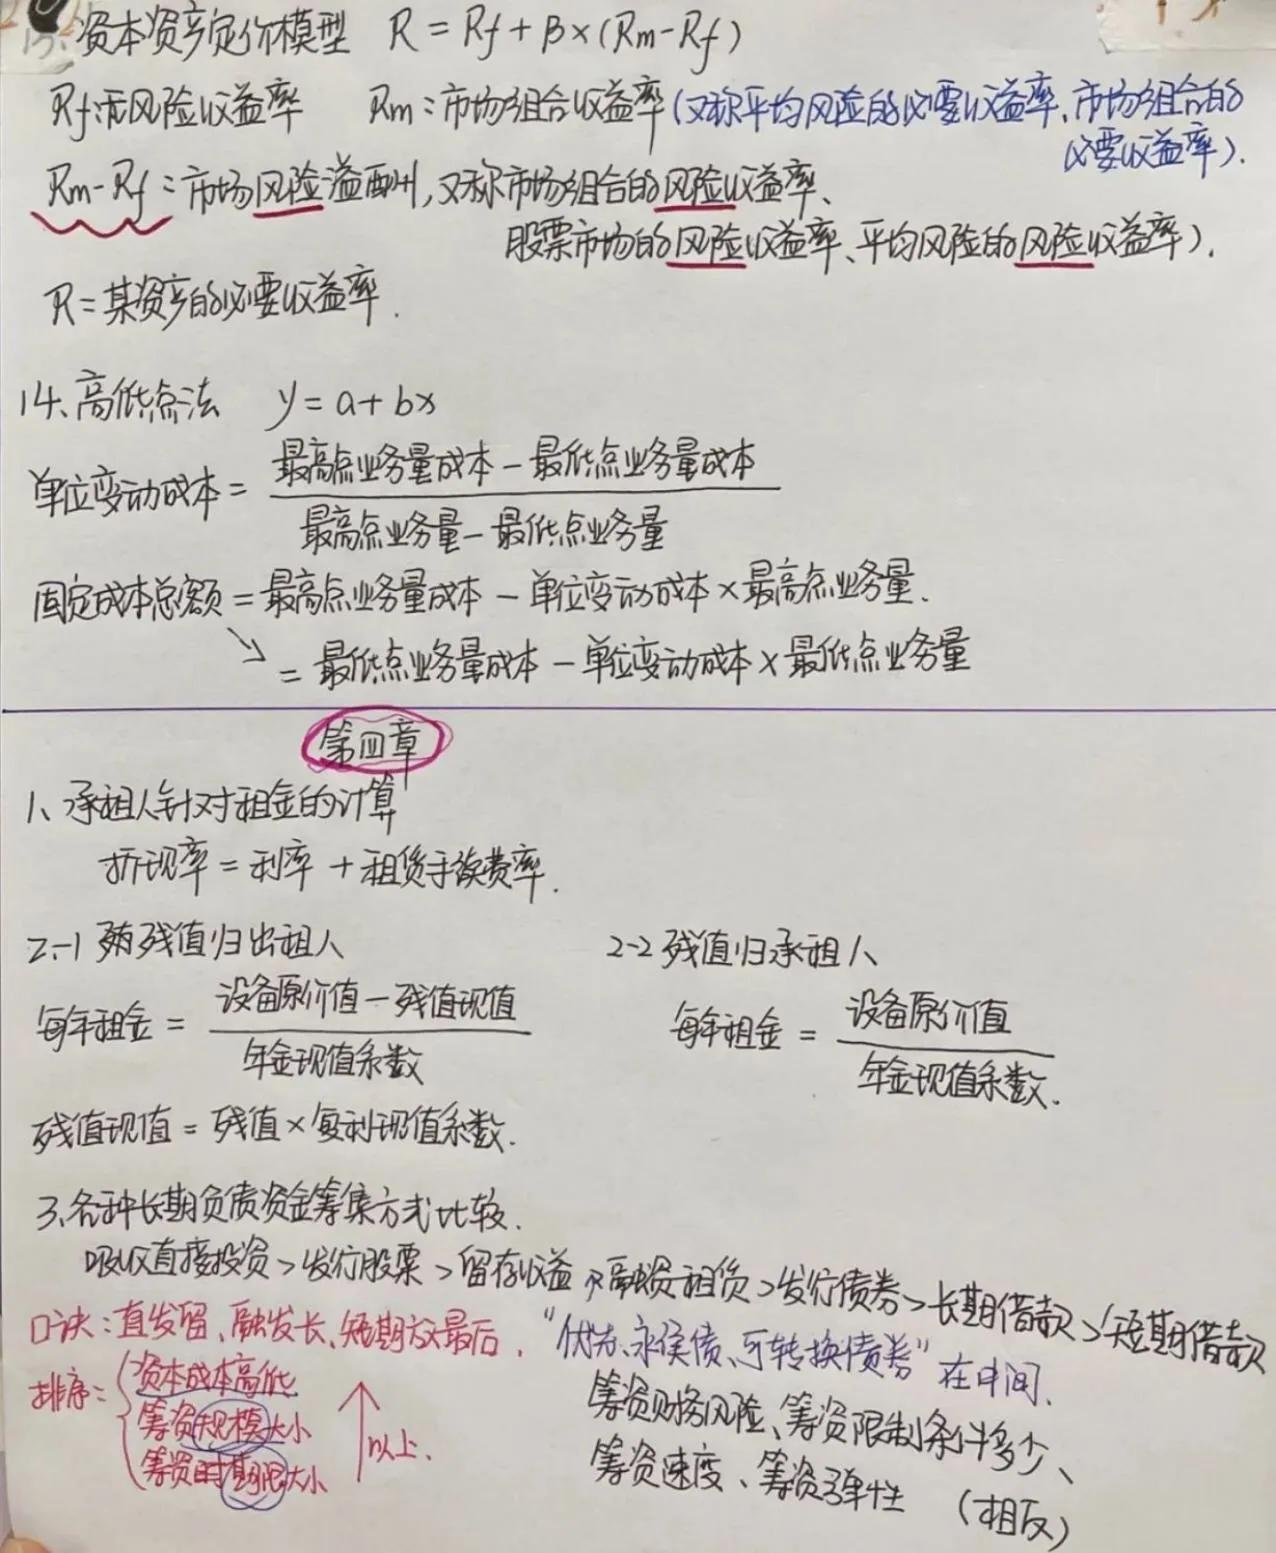 13、资本资产定价模型 R = Rf + β×(Rm-Rf)
Rf:无风险收益率 Rm：市场组合收益率(又称平均风险的必要收益率、市场组合的
必要收益率).
Rm-Rf：市场风险溢酬,又称市场组合的风险收益率、
股票市场的风险收益率、平均风险的风险收益率).
R=某资产的必要收益率.
14、高低点法 y=a+bx
单位变动成本 = 最高点业务量成本 - 最低点业务量成本
最高点业务量 - 最低点业务量
固定成本总额 = 最高点业务量成本 - 单位变动成本×最高点业务量.
= 最低点业务量成本 - 单位变动成本×最低点业务量
第四章
1、承租人针对租金的计算
折现率 = 利率 + 租赁手续费率.
2-1 残值归出租人 2-2 残值归承租人
每年租金 = 设备原价值 - 残值现值 每年租金 = 设备原价值
年金现值系数 年金现值系数.
残值现值 = 残值×复利现值系数.
3、各种长期负债资金筹集方式比较.
吸收直接投资>发行股票>留存收益>融资租赁>发行债券>长期借款>短期借款
口诀：直发留、融发长、短期放最后, “优先、永续债、可转换债券”在中间.
排序： 资本成本高低
筹资规模大小
筹资时期限大小
以上.
筹资财务风险、筹资限制条件多少、
筹资速度、筹资弹性 (相反)